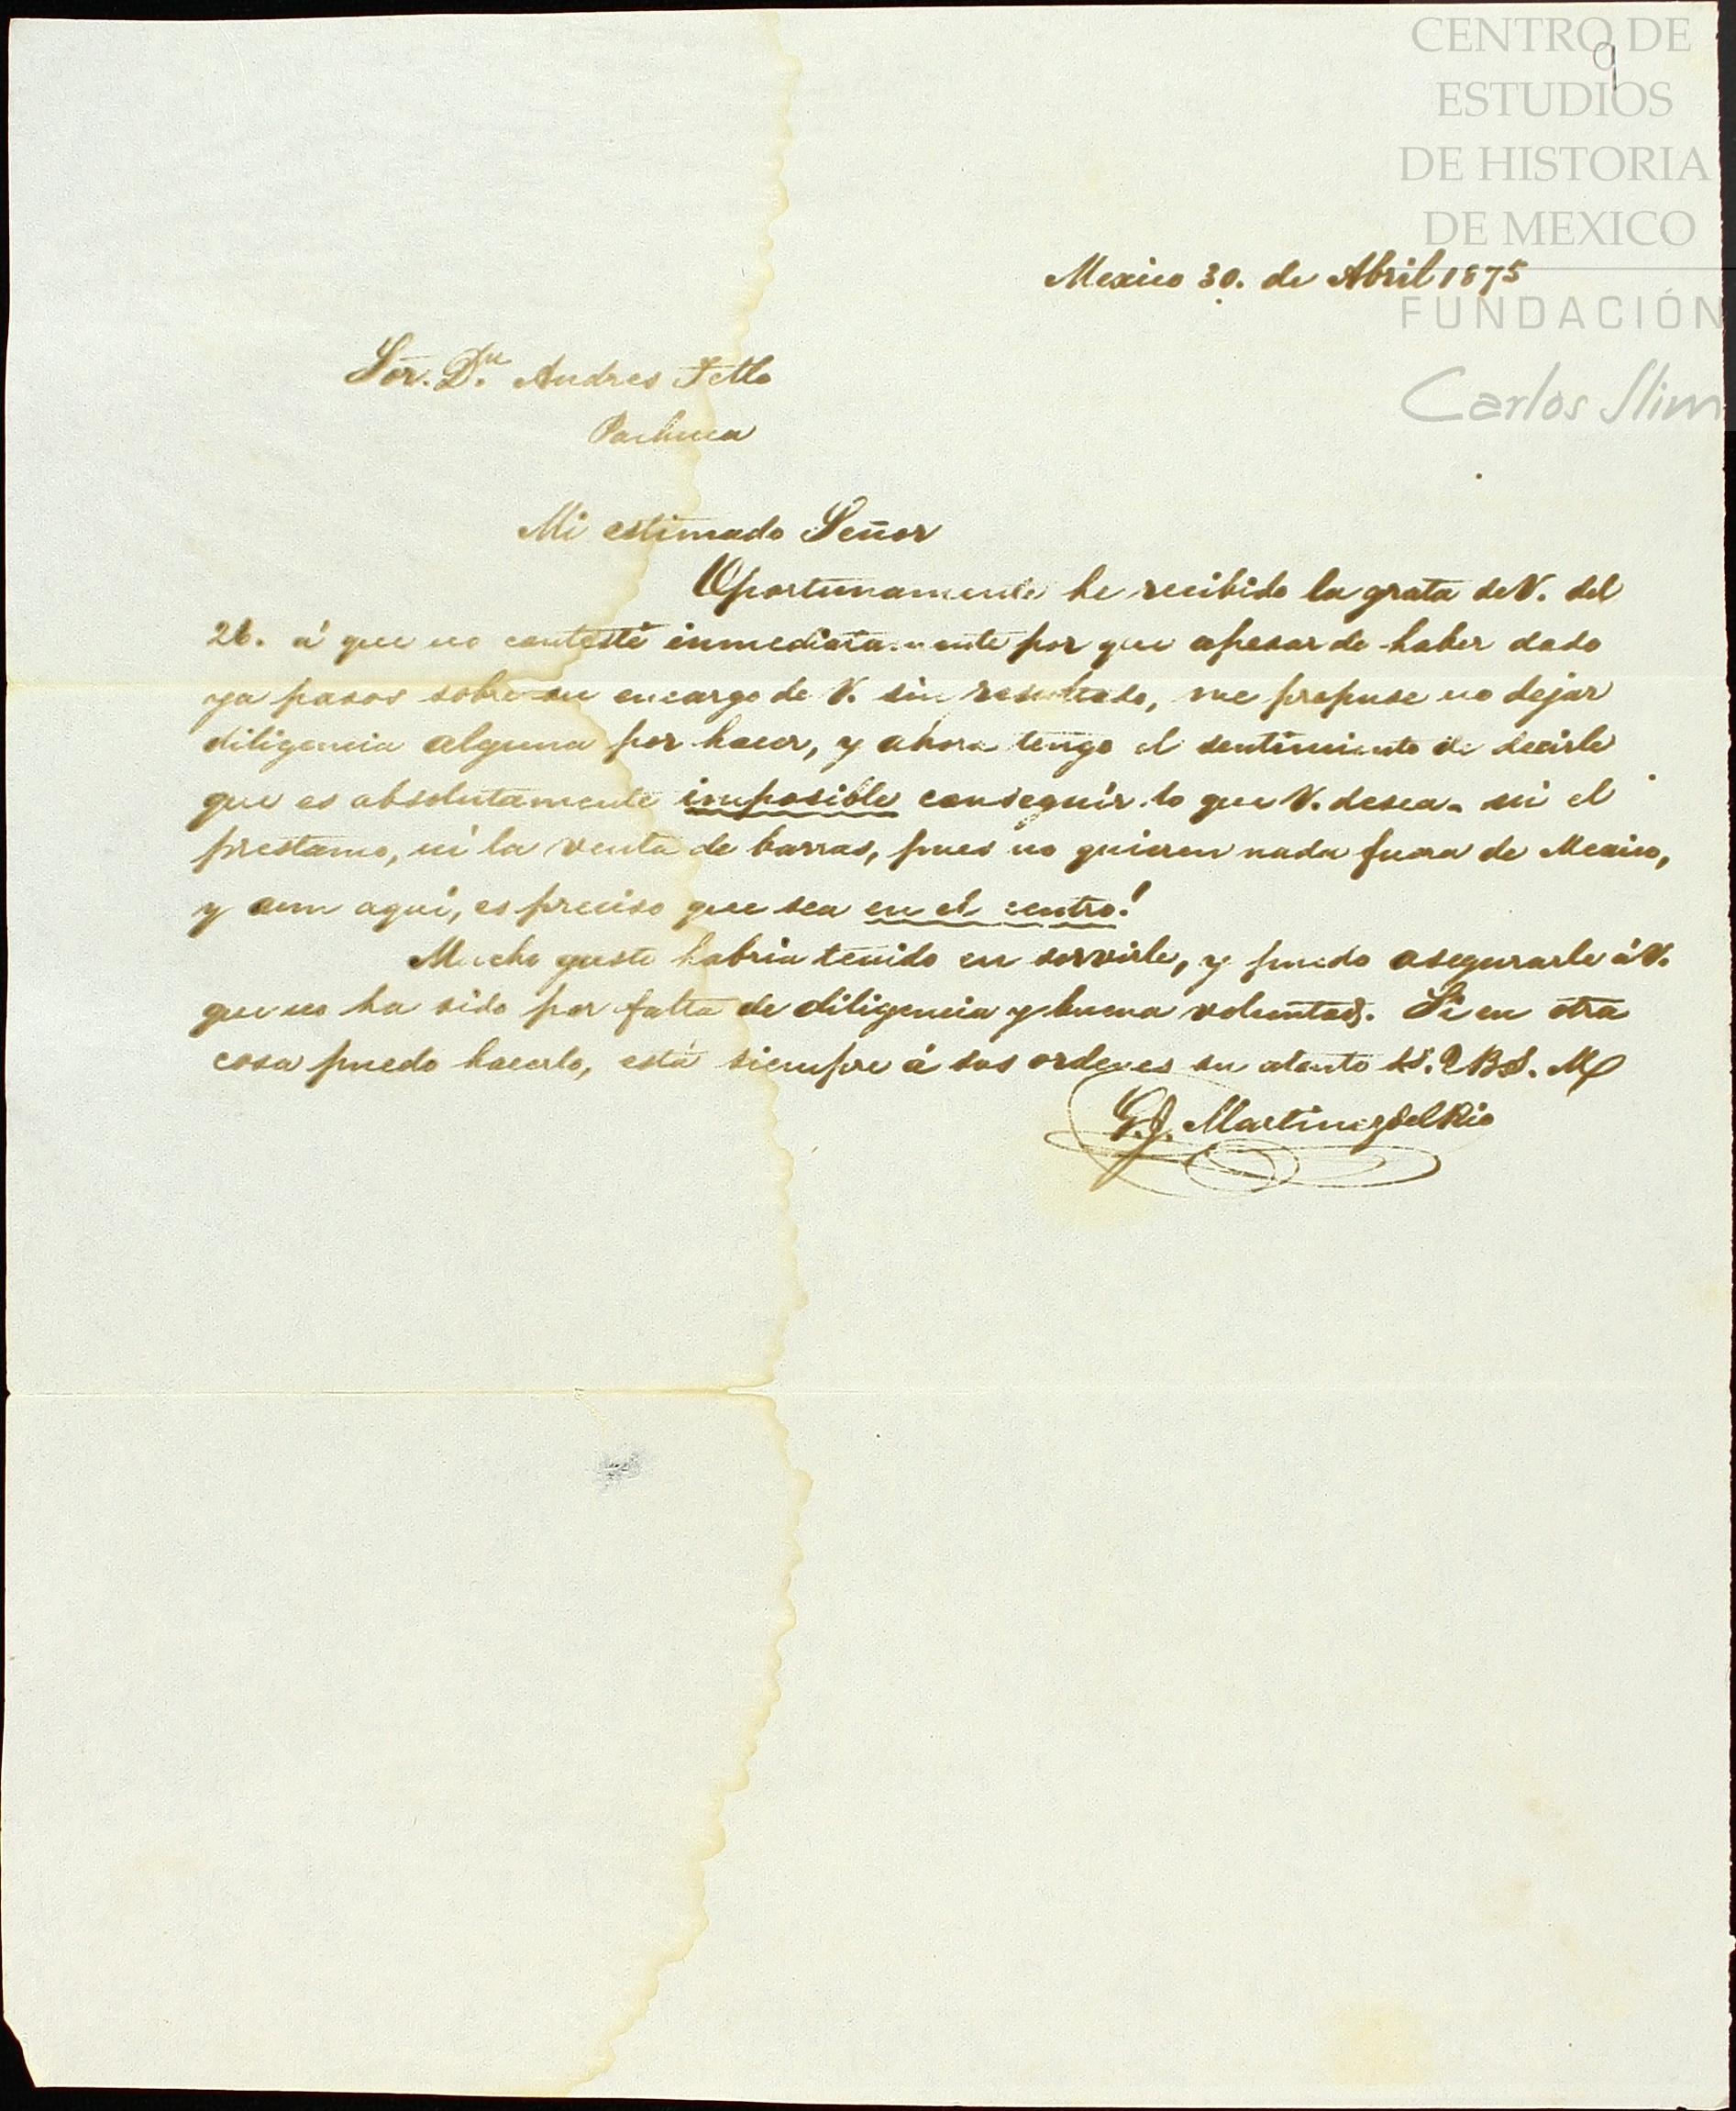 CENTRO DE
ESTUDIOS
DE HISTORIA
DE MEXICO
FUNDACIÓN
Carlos Slim
9
Mexico 30. de Abril 1875
Sor. Dn. Andres Tello
Pachuca
Mi estimado Señor
Oportunamente he recibido la grata de V. del
26. á que no contesté inmediatamente por que apesar de haber dado
ya pasos sobre su encargo de V. sin resultado, me propuse no dejar
diligencia alguna por hacer, y ahora tengo el sentimiento de decirle
que es absolutamente imposible conseguir lo que V. desea. ni el
prestamo, ni la venta de barras, pues no quieren nada fuera de Mexico,
y aun aquí, es preciso que sea en el centro!
Mucho gusto habria tenido en servirle, y puedo asegurarle á V.
que no ha sido por falta de diligencia y buena voluntad. Si en otra
cosa puedo hacerlo, está siempre á sus ordenes su atento S.S. Q B S. M
G. J. Martinez del Rio